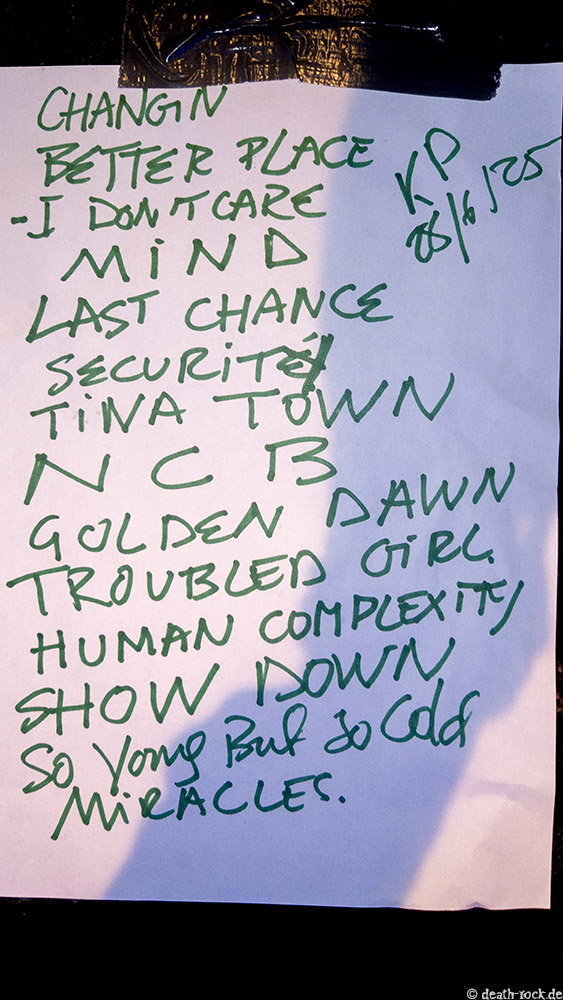 CHANGIN
BETTER PLACE
KP
28/6/25
-I DON'T CARE
MIND
LAST CHANCE
SECURITÉ
TINA TOWN
NCB
GOLDEN DAWN
TROUBLED GIRL
HUMAN COMPLEXITY
SHOW DOWN
So Yong But So Cold
MIRACLES.
© death-rock.de